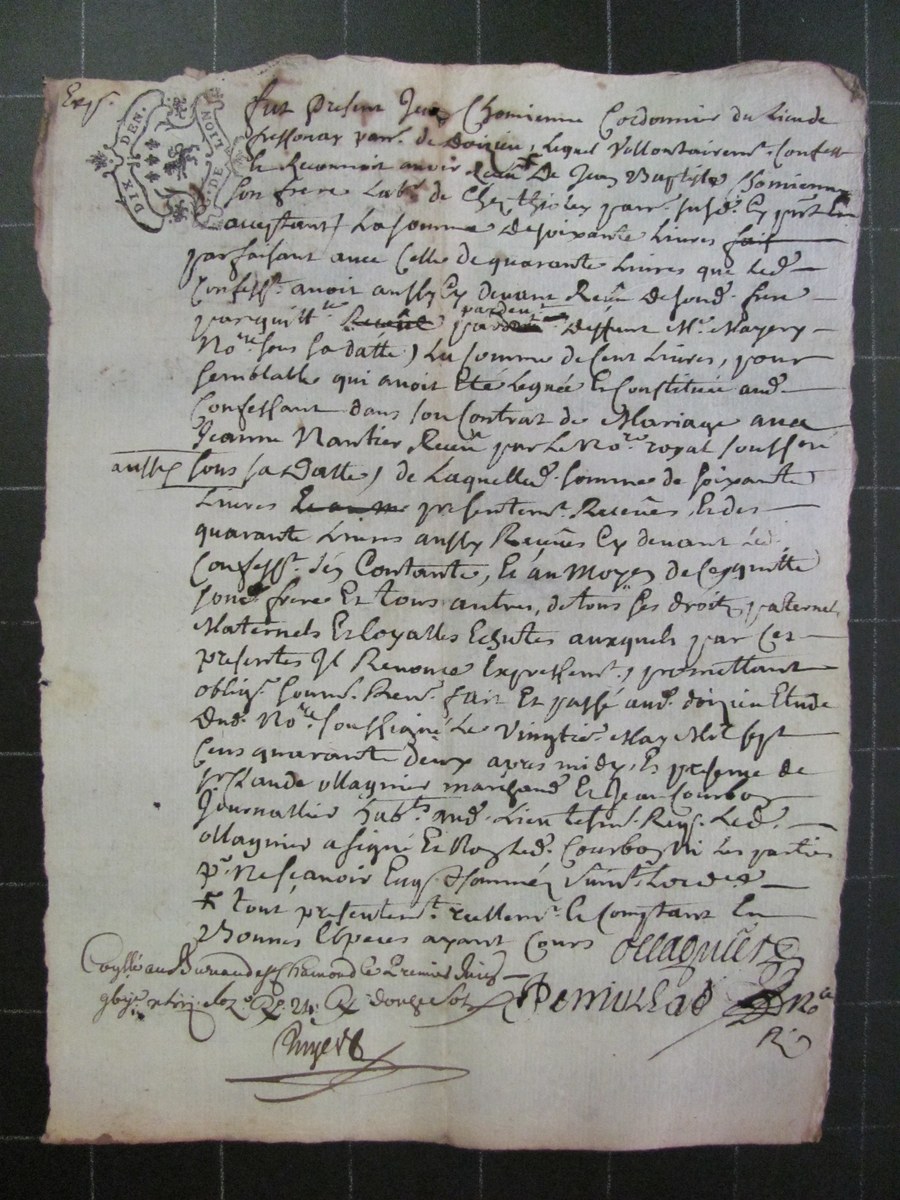 Exp.
DIX DEN. NOIT DE
fut present Jean Chomienne Cordonnier du Lieu de
parr. de Doizieu, Lequel Vollontairemt. Confesse
Et Reconnoit avoir Receu ⁎ De Jean Baptiste Chomienne
Son frere Labr. de parr. susd. Cy pnt. Et
acceptant, La somme De soixante Livres fait
parfaisant avec Celle de quarante Livres que Led.
Confesst. avoit aussy Cy devant Receu De sond. frere
par quittce. Receue pardevt. Deffunt Me. Mayery
Nore. sous sa datte, La somme de Cent Livres, pour
semblable qui avoit Eté Leguée Et Constituée aud.
Confessant dans son Contrat de Mariage avec
Jeanne Nantier Receu par Le Nore. royal soussigné
aussy sous sa Datte, de Laquelle d. somme de soixante
Livres presentemt. Receue, Et des
quarante Livres aussy Receues Cy devant Led.
Confesst. s'en Contante, Et au Moyen de Ce quitte
sond. frere Et tous autres, de tous ses droits paternels
Maternels Et Loyalles Echutes auxquels par Ces
presentes Il Renonce Expressemt., promettant
obligt. soumt. Rent. fait Et passé aud. doizieu Etude
Dud. Nore. soussigné Le Vingtie. May Mil sept
Cens quarante deux apres midy, En presence de
sr. Claude ollagnier marchand Et Jean Courbon
Journallier habts. aud. Lieu tesmt. Reqs. Led.
ollagnier a signé Et Non Led. Courbon Ni Les parties
pr. Ne sçavoir Enqs. Et sommés suivt. Lord.
⁎ tout presentemt. reellemt. Et Comptant En
Bonnes Especes ayant Cours ollagnier
Conllé au Bureau de St. Chamond Le Premier Juin
douze sols
Nore
R.